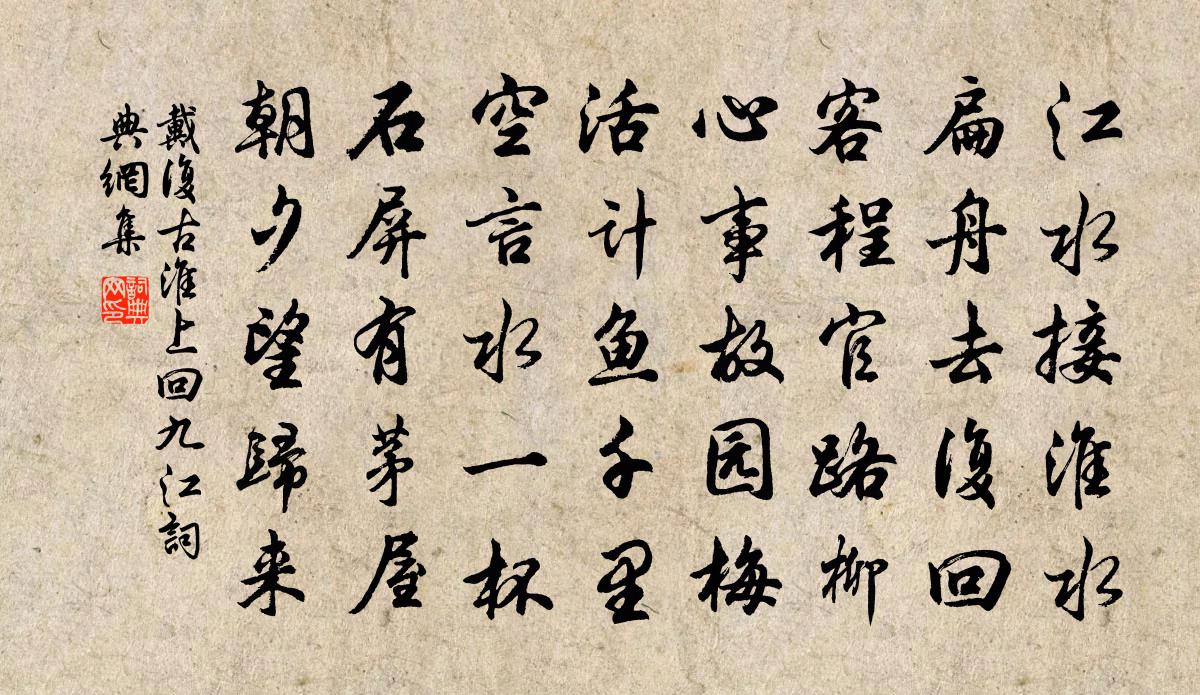 江水接淮水
扁舟去復回
客程官路柳
心事故园梅
活计鱼千里
空言水一杯
石屏有茅屋
朝夕望歸来
戴復古淮上回九江詞
典網集
詞典
网印